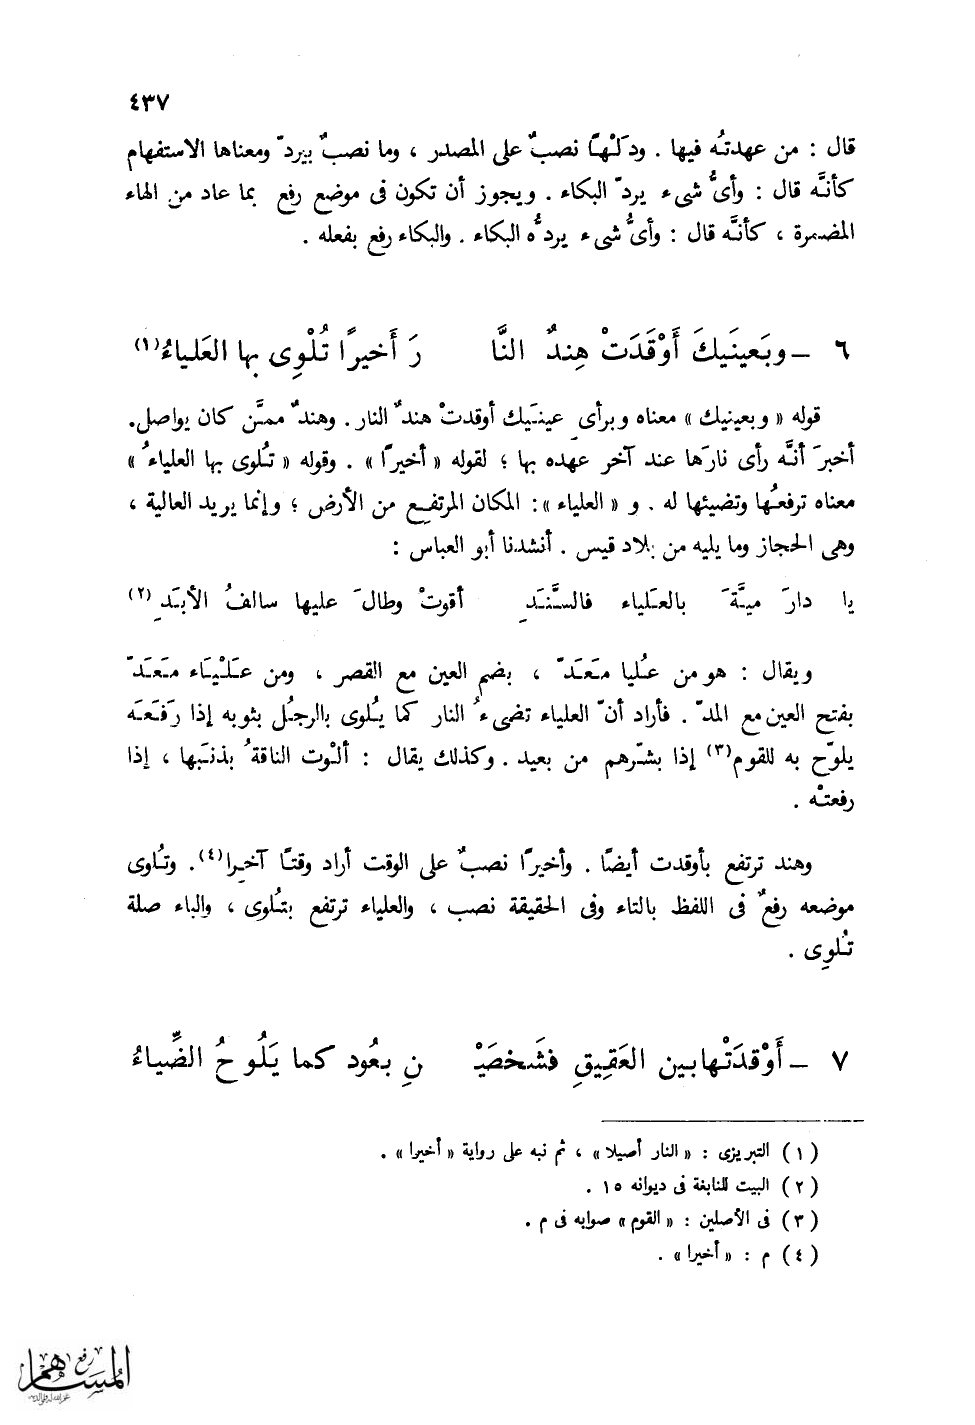 ٤٣٧
قال : من عهدتُه فيها . ودَلْهًا نصبٌ على المصدر ، وما نصبٌ بيردّ ومعناها الاستفهام
كأنَّه قال : وأىُّ شىء يردّ البكاء . ويجوز أن تكون فى موضع رفع بما عاد من الهاء
المضمرة ، كأنَّه قال : وأىُّ شىء يردُّه البكاء . والبكاء رفع بفعله .
٦ ــ وبَعينَيكَ أَوْقَدَتْ هِندٌ النَّا رَ أَخيرًا تُلْوِى بها العَلياءُ(١)
قوله « وبعينيك » معناه وبرأىِ عينَيك أوقدتْ هندٌ النار . وهندٌ ممَّن كان يواصل.
أخبرَ أنَّه رأى نارَها عند آخر عهده بها ؛ لقوله « أخيرًا » . وقوله « تُلوى بها العلياءُ »
معناه ترفعُها وتضيئها له . و « العلياء »: المكان المرتفع من الأرض ؛ وإنما يريد العالية ،
وهى الحجاز وما يليه من بلاد قيس . أنشدنا أبو العباس :
يا دارَ ميَّةَ بالعَلياء فالسَّنَدِ أقوتْ وطالَ عليها سالفُ الأبَدِ (٢)
ويقال : هو من عُليا مَعَدّ ، بضم العين مع القصر ، ومن عَلْيَاء مَعَدّ
بفتح العين مع المدّ . فأراد أنّ العلياء تضىءُ النار كما يُلوى بالرجُل بثوبه إذا رَفَعَه
يلوّح به للقوم(٣) إذا بشّرهم من بعيد . وكذلك يقال : ألْوت الناقةُ بذنَبها ، إذا
رفعتْه .
وهند ترتفع بأوقدت أيضًا . وأخيرًا نصبٌ على الوقت أراد وقتًا آخرا(٤). وتُلوى
موضعه رفعٌ فى اللفظ بالتاء وفى الحقيقة نصب ، والعلياء ترتفع بتُلوى ، والباء صلة
تُلوِى .
٧ ــ أَوْقدَتْها بين العَقِيقِ فشَخصَيْـ ـنِ بعُود كما يَلُوحُ الضِّياءُ
(١) التبريزى : « النار أصيلا » ، ثم نبه على رواية « أخيرا » .
(٢) البيت للنابغة فى ديوانه ١٥ .
(٣) فى الأصلين : « القوم » صوابه فى م .
(٤) م : « أخيرا » .
رفع
المساهم